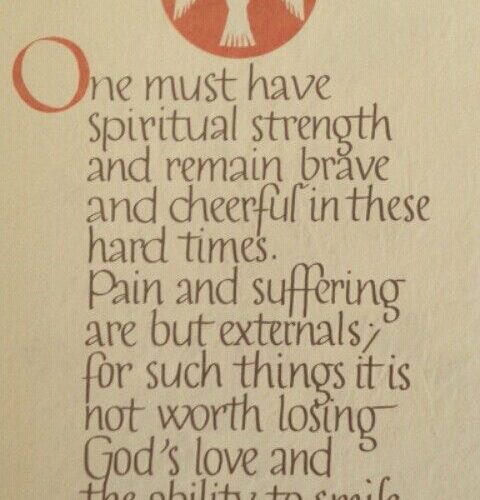 One must have
spiritual strength
and remain brave
and cheerful in these
hard times.
Pain and suffering
are but externals;
for such things it is
not worth losing
God's love and
the ability to smile